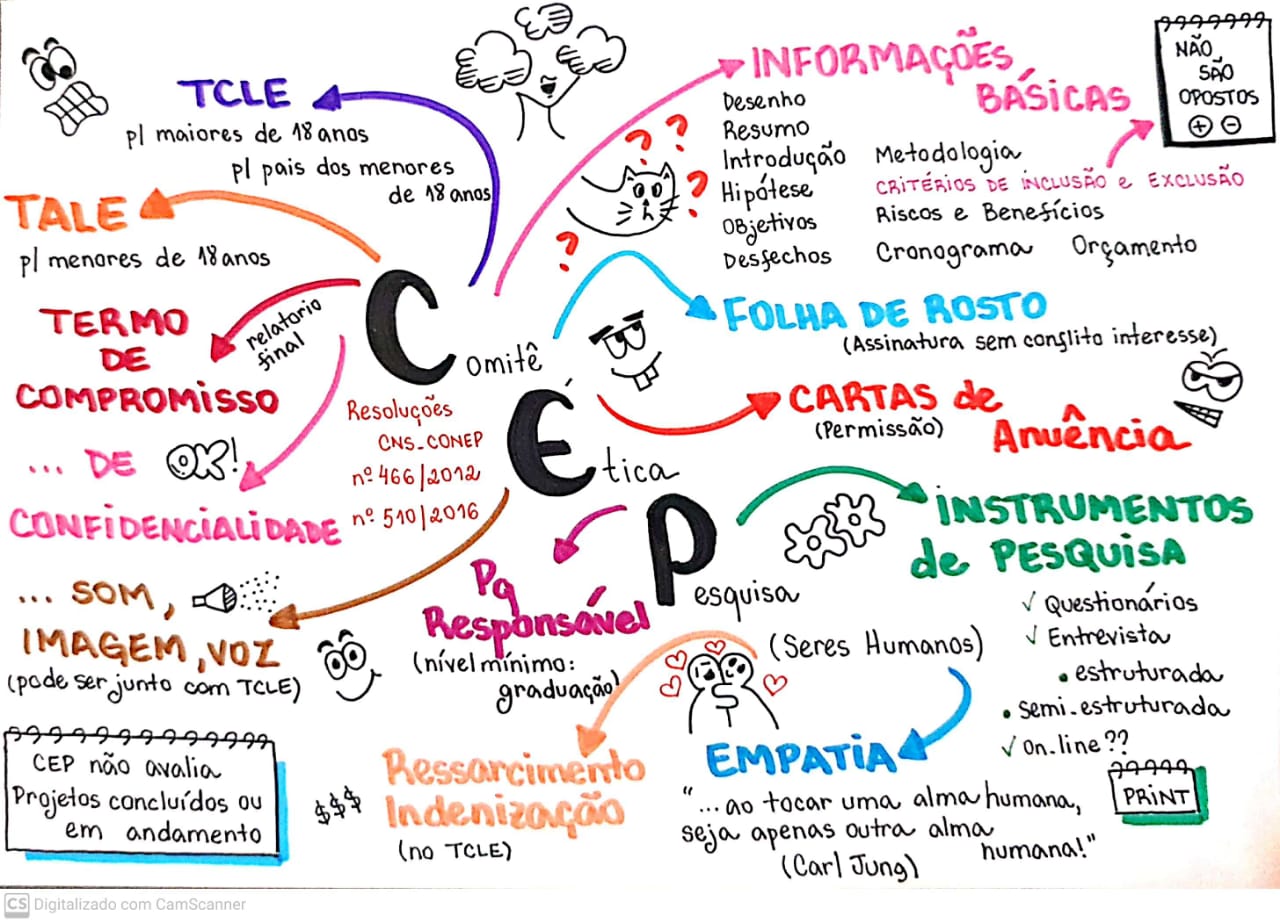 TCLE
p/ maiores de 18 anos
p/ pais dos menores
de 18 anos
TALE
p/ menores de 18 anos
TERMO
DE
COMPROMISSO
relatorio
final
... DE OK!
CONFIDENCIALIDADE
... SOM,
IMAGEM, VOZ
(pode ser junto com TCLE)
CEP não avalia
Projetos concluídos ou
em andamento
Comitê
Ética
Pesquisa
(Seres Humanos)
Resoluções
CNS_CONEP
nº 466/2012
nº 510/2016
Pq
Responsável
(nível mínimo:
graduação)
$$$
Ressarcimento
Indenização
(no TCLE)
INFORMAÇÕES
BÁSICAS
Desenho
Resumo
Introdução
Hipótese
Objetivos
Desfechos
Metodologia
CRITÉRIOS DE INCLUSÃO e EXCLUSÃO
Riscos e Benefícios
Cronograma Orçamento
NÃO
SÃO
OPOSTOS
+ -
? ? ? ?
FOLHA DE ROSTO
(Assinatura sem conflito interesse)
CARTAS de
(Permissão)
Anuência
INSTRUMENTOS
de PESQUISA
√ Questionários
√ Entrevista
• estruturada
• semi-estruturada
√ On.line??
PRINT
EMPATIA
"... ao tocar uma alma humana,
seja apenas outra alma
humana!"
(Carl Jung)
CS Digitalizado com CamScanner